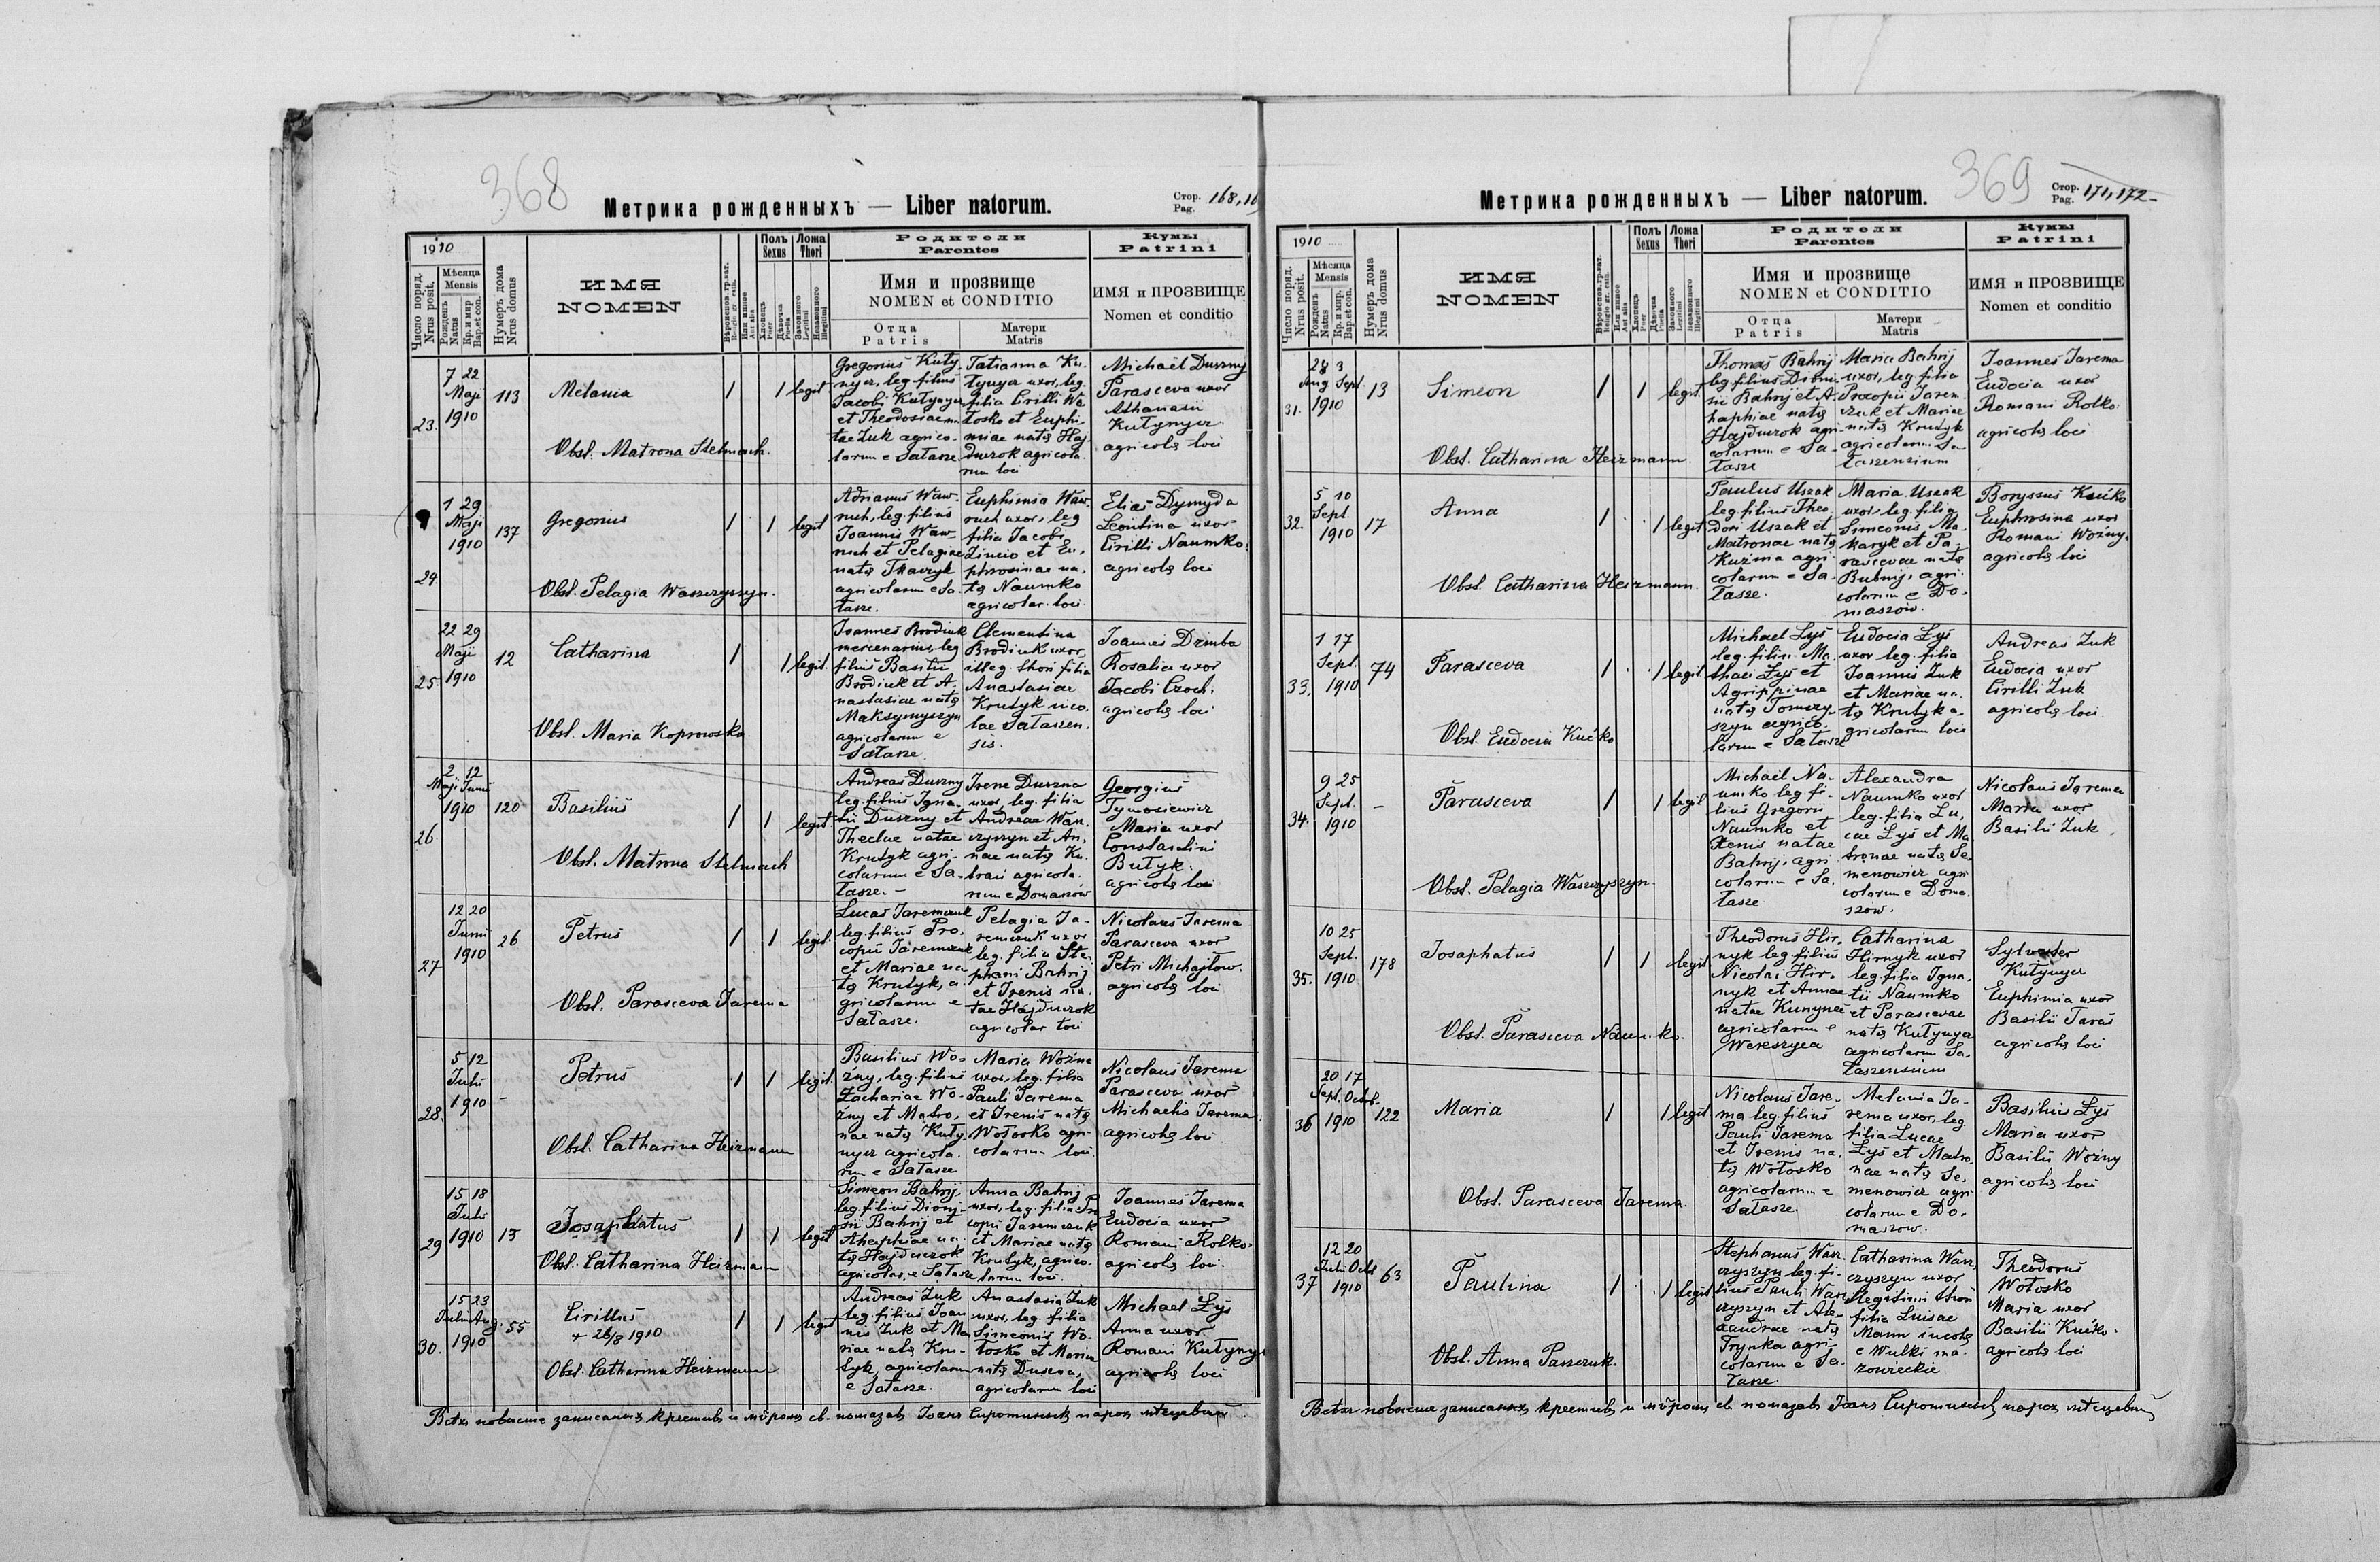 368
Метрика рожденныхъ — Liber natorum.
Стор. Pag. 168,16
1910
Число поряд. Nrus posit.
Мѣсяца Mensis
Рожденъ Natus
Кр. и мир. Bap. et con.
Нумеръ дома Nrus domus
ИМЯ
NOMEN
Вѣроиспов. гр. кат. Religio gr. cath.
Или иное Aut alia
Полъ Sexus
Хлопець Puer
Дѣвочка Puella
Ложа Thori
Законного Legitimi
Незаконного Illegitimi
Родители
Parentes
Имя и прозвище
NOMEN et CONDITIO
Отца Patris
Матери Matris
Кумы
Patrini
ИМЯ и ПРОЗВИЩЕ
Nomen et conditio
23.
7 22
Maji
1910
113
Melania
1 1 legit
Obst. Matrona Stelmach.
Gregorius Kuty-
nyer, leg. filius
Jacobi Kutynyer
et Theodosiae na-
tae Zuk agrico-
larum e Sałasze
Tatianna Ku-
tynyer uxor, leg.
filia Cirilli Wo-
łosko et Euphi-
miae natę Haj
duczok agricola-
rum loci
Michaël Duszny
Parasceva uxor
Athanasii
Kutynyer
agricolę loci
24
1 29
Maji
1910
137
Gregorius
1 1 legit
Obst. Pelagia Waszczyszyn.
Adrianus Waw-
ruch, leg. filius
Joannis Waw-
ruch et Pelagiae
natę Tkaczyk
agricolarum e Sa-
łasze.
Euphimia Waw-
ruch uxor, leg
filia Jacobi
Zincio et Eu-
phrosinae na-
tę Naumko
agricolar. loci
Elias Dymyda
Leontina uxor
Cirilli Naumko
agricolę loci
25.
22 29
Maji
1910
12
Catharina
1 1 legit.
Obst. Maria Koprowska
Joannes Brodiuk
mercenarius, leg
filius Basilii
Brodiuk et A-
nastasiae natę
Maksymyszyn
agricolarum e
Sałasze
Clementina
Brodiuk uxor,
illeg. thori filia
Anastasiae
Krutyk inco-
lae Sałaszen-
sis.
Joannes Dzmba
Rosalia uxor
Jacobi Czoch.
agricolę loci
26.
2 12
Maji Junii
1910
120
Basilius
1 1 legit
Obst. Matrona Stelmach
Andreas Duszny
leg. filius Igna-
tii Duszny et
Theclae natae
Krutyk agri-
colarum e Sa-
łasze. -
Irene Duszna
uxor, leg. filia
Andreae Wasz-
czyszyn et An-
nae natę Ku-
agricola-
rum e Domaszów
Georgius
Tymosiewicz
Maria uxor
Constantini
Butyk.
agricolę loci
27
12 20
Junii
1910
26
Petrus
1 1 legit.
Obst. Parasceva Jarema
Lucas Jaremczuk
leg. filius Pro-
copii Jaremczuk
et Mariae na-
tę Krutyk, a-
gricolarum e
Sałasze.
Pelagia Ja-
remczuk uxor
leg. filia Ste-
phani Bahrij
et Irenis na-
tae Hajduczok
agricolar loci
Nicolaus Jarema
Parasceva uxor
Petri Michajłow.
agricolę loci
28.
5 12
Julii
1910
-
Petrus
1 1 legit.
Obst. Catharina Heizmann
Basilius Wo-
źny, leg. filius
Zachariae Wo-
źny et Matro-
nae natę Kuty-
nyer agricola-
rum e Sałasze
Maria Woźna
uxor, leg. filia
Pauli Jarema
et Irenis natę
Wołosko agri-
colarum loci.
Nicolaus Jarema
Parasceva uxor
Michaelis Jarema
agricolę loci
29
15 18
Julii
1910
13
Josaphatus
1 1 legit
Obst. Catharina Heizmann
Simeon Bahrij
leg. filius Diony-
sii Bahrij et
Ahaphiae na-
tę Hajduczok
agricolar. e Sałasze
Anna Bahrij
uxor, leg. filia Pro
copii Jaremczuk
et Mariae natę
Krutyk, agrico-
larum loci.
Joannes Jarema
Eudocia uxor
Romani Rolko.
agricolę loci.
30.
15 23
Julii Aug.
1910
55
Cirillus
+ 26/8 1910
1 1 legit
Obst. Catharina Heizmann
Andreas Zuk
leg. filius Joan
nis Zuk et Ma
riae natę Kru-
tyk, agricolarum
e Sałasze.
Anastasia Zuk
uxor, leg. filia
Simeonis Wo-
łosko et Mariae
natę Duszna,
agricolarum loci
Michael Łyś
Anna uxor
Romani Kutynyer
agricolę loci
369
Метрика рожденныхъ — Liber natorum.
Стор. Pag. 171, 172-
1910
Число поряд. Nrus posit.
Мѣсяца Mensis
Рожденъ Natus
Кр. и мир. Bap. et con.
Нумеръ дома Nrus domus
ИМЯ
NOMEN
Вѣроиспов. гр. кат. Religio gr. cath.
Или иное Aut alia
Полъ Sexus
Хлопець Puer
Дѣвочка Puella
Ложа Thori
Законного Legitimi
Незаконного Illegitimi
Родители
Parentes
Имя и прозвище
NOMEN et CONDITIO
Отца Patris
Матери Matris
Кумы
Patrini
ИМЯ и ПРОЗВИЩЕ
Nomen et conditio
31.
28 3
Aug Sept.
1910
13
Simeon
1 1 legit.
Obst. Catharina Heizmann
Thomas Bahrij
leg. filius Dioni-
sii Bahrij et A-
haphiae natę
Hajduczok agri-
colarum e Sa-
łasze
Maria Bahrij
uxor, leg. filia
Procopii Jarem-
czuk et Mariae
natę Krutyk
agricolarum Sa-
łaszensium
Joannes Jarema
Eudocia uxor
Romani Rolko
agricolę loci
32.
5 10
Sept.
1910
17
Anna
1 1 legit
Obst. Catharina Heizmann.
Paulus Uszak
leg. filius Theo-
dori Uszak et
Matronae natę
Kuźma agri-
colarum e Sa-
łasze.
Maria Uszak
uxor, leg. filia
Simeonis Ma-
karyk et Pa-
rascevae natę
Butnij, agri-
colarum e Do-
maszów.
Boryssus Kućko
Euphrosina uxor
Romani Woźny.
agricolę loci
33.
1 17
Sept.
1910
74
Parasceva
1 1 legit
Obst. Eudocia Kućko
Michael Łyś
leg. filius Ma-
thaei Łyś et
Agrippinae
natę Tomczy-
szyn agrico-
larum e Sałasze
Eudocia Łyś
uxor leg. filia
Joannis Zuk
et Mariae na-
tę Krutyk a-
gricolarum loci
Andreas Zuk
Eudocia uxor
Cirilli Zuk
agricolę loci
34.
9 25
Sept.
1910
-
Parasceva
1 1 legit
Obst. Pelagia Waszczyszyn.
Michaël Na-
umko leg. fi-
lius Gregorii
Naumko et
Xenis natae
Bahrij. agri-
colarum e Sa-
łasze
Alexandra
Naumko uxor
leg. filia Lu-
cae Łyś et Ma-
tronae natę Se-
menowicz agri
colarum e Doma-
szów.
Nicolaus Jarema
Maria uxor
Basilii Zuk
35.
10 25
Sept.
1910
178
Josaphatus
1 1 legit
Obst. Parasceva Naumko.
Theodorus Hir-
nyk leg. filius
Nicolai Hir-
nyk et Annae
natae Kunyneć
agricolarum e
Wereszyca
Catharina
Hirnyk uxor
leg. filia Igna-
tii Naumko
et Parascevae
natę Kutynyer
agricolarum Sa-
łaszensium
Sylvester
Kutynyer
Euphimia uxor
Basilii Taras
agricolę loci
36
20 17
Sept. Octob.
1910
122
Maria
1 1 legit
Obst. Parasceva Jarema.
Nicolaus Jare-
ma leg. filius
Pauli Jarema
et Irenis na-
tę Wołosko
agricolarum e
Sałasze.
Melania Ja-
rema uxor, leg
filia Lucae
Łyś et Matro-
nae natę Se-
menowicz agri
colarum e Do-
maszów.
Basilius Łyś
Maria uxor
Basilii Woźny
agricolę loci
37
12 20
Julii Octb
1910
63
Paulina
1 1 legit
Obst. Anna Paszczuk.
Stephanus Wasz-
czyszyn leg. fi-
lius Pauli Wasz-
czyszyn et Ale-
xandrae natę
Hrynka agri-
colarum e Sa-
łasze
Catharina Wasz-
czyszyn uxor
illegitimi thori
filia Luisae
Mann incolę
e Wulki ma-
zowieckie
Theodorus
Wołosko
Maria uxor
Basilii Kućko.
agricolę loci